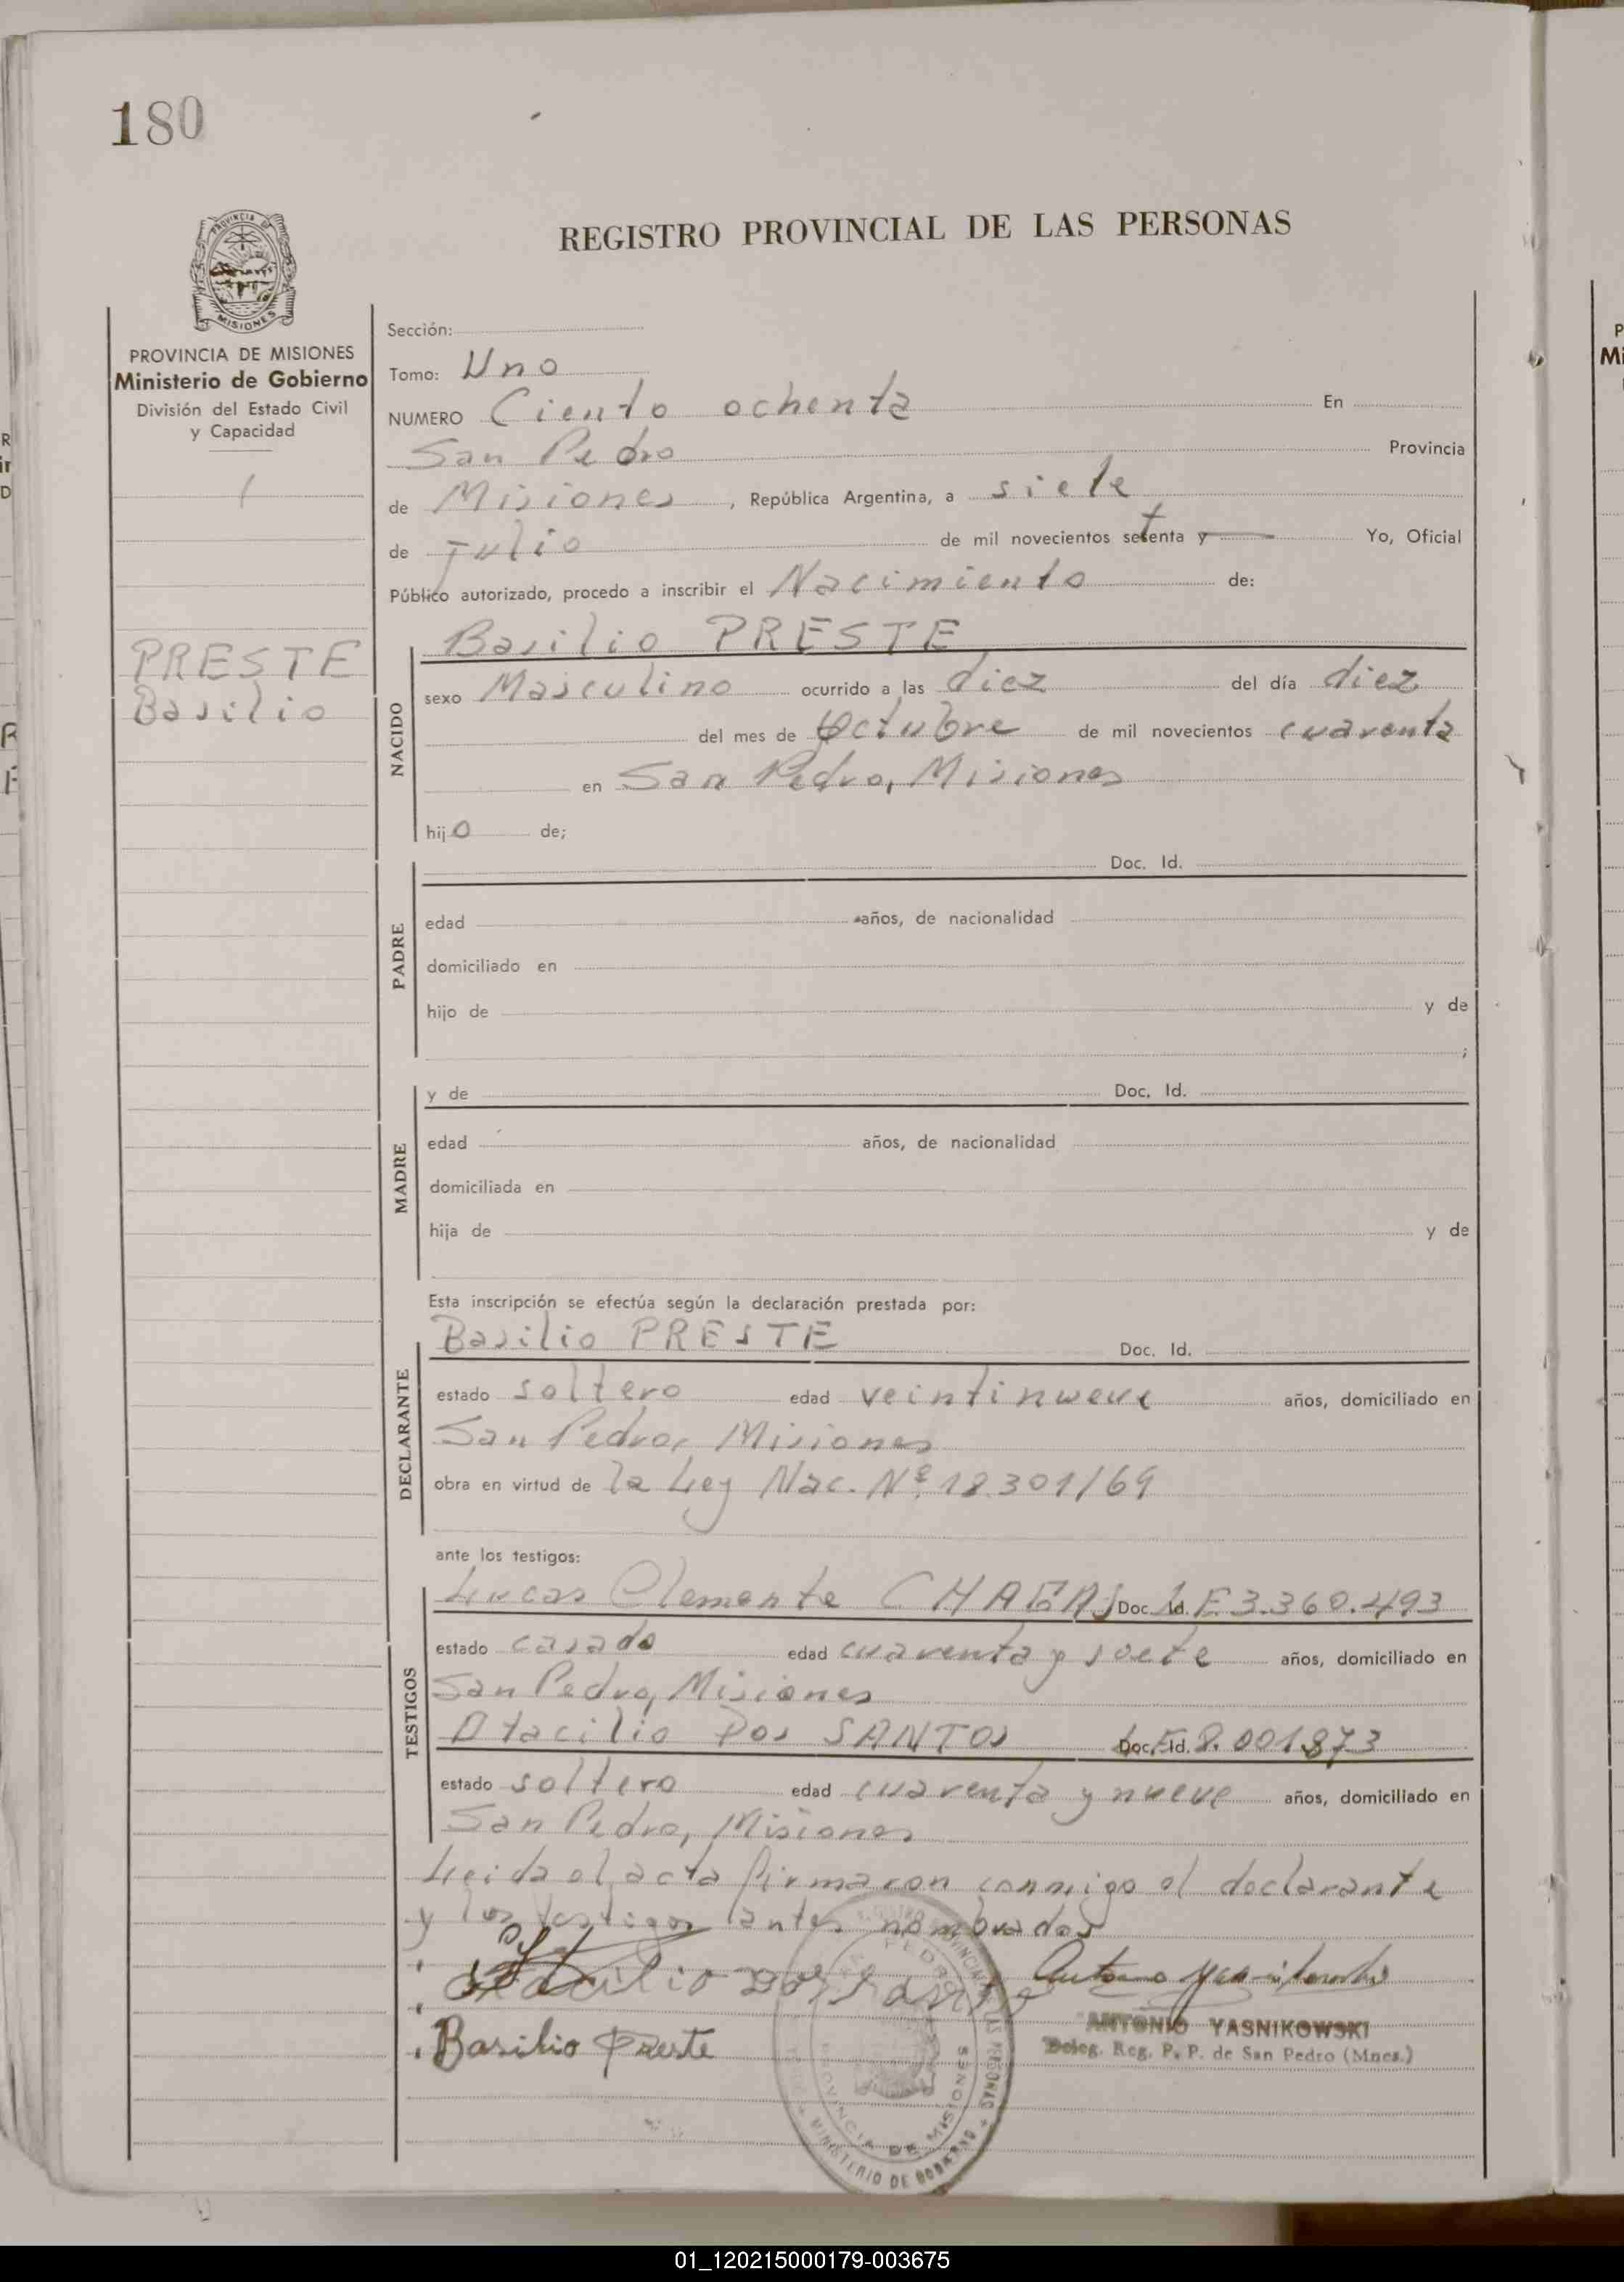 180
REGISTRO PROVINCIAL DE LAS PERSONAS
PROVINCIA DE MISIONES
Ministerio de Gobierno
División del Estado Civil
y Capacidad
PRESTE
Basilio
Sección:
Tomo: Uno
NUMERO Ciento ochenta En
San Pedro Provincia
de Misiones, República Argentina, a siete
de Julio de mil novecientos setenta y — Yo, Oficial
Público autorizado, procedo a inscribir el Nacimiento de:
NACIDO
Basilio PRESTE
sexo Masculino ocurrido a las diez del día diez
del mes de Octubre de mil novecientos cuarenta
en San Pedro, Misiones
hijo de;
PADRE
Doc. Id.
edad años, de nacionalidad
domiciliado en
hijo de y de
;
MADRE
y de Doc. Id.
edad años, de nacionalidad
domiciliada en
hija de y de
Esta inscripción se efectúa según la declaración prestada por:
DECLARANTE
Basilio PRESTE Doc. Id.
estado soltero edad veintinueve años, domiciliado en
San Pedro, Misiones
obra en virtud de la Ley Nac. Nº 18.301/69
ante los testigos:
TESTIGOS
Lucas Clemente Doc. Id. L.E. 3.360.493
estado casado edad cuarenta y siete años, domiciliado en
San Pedro, Misiones
Otacilio Dos SANTOS Doc. Id. L.E. 8.001.873
estado soltero edad cuarenta y nueve años, domiciliado en
San Pedro, Misiones
Leida el acta firmaron conmigo el declarante
y los testigos antes nombrados
Otacilio Dos Santos
Basilio Preste
ANTONIO YASNIKOWSKI
Deleg. Reg. P. P. de San Pedro (Mnes.)
PROVINCIA DE MISIONES
MINISTERIO DE GOBIERNO
01_120215000179-003675